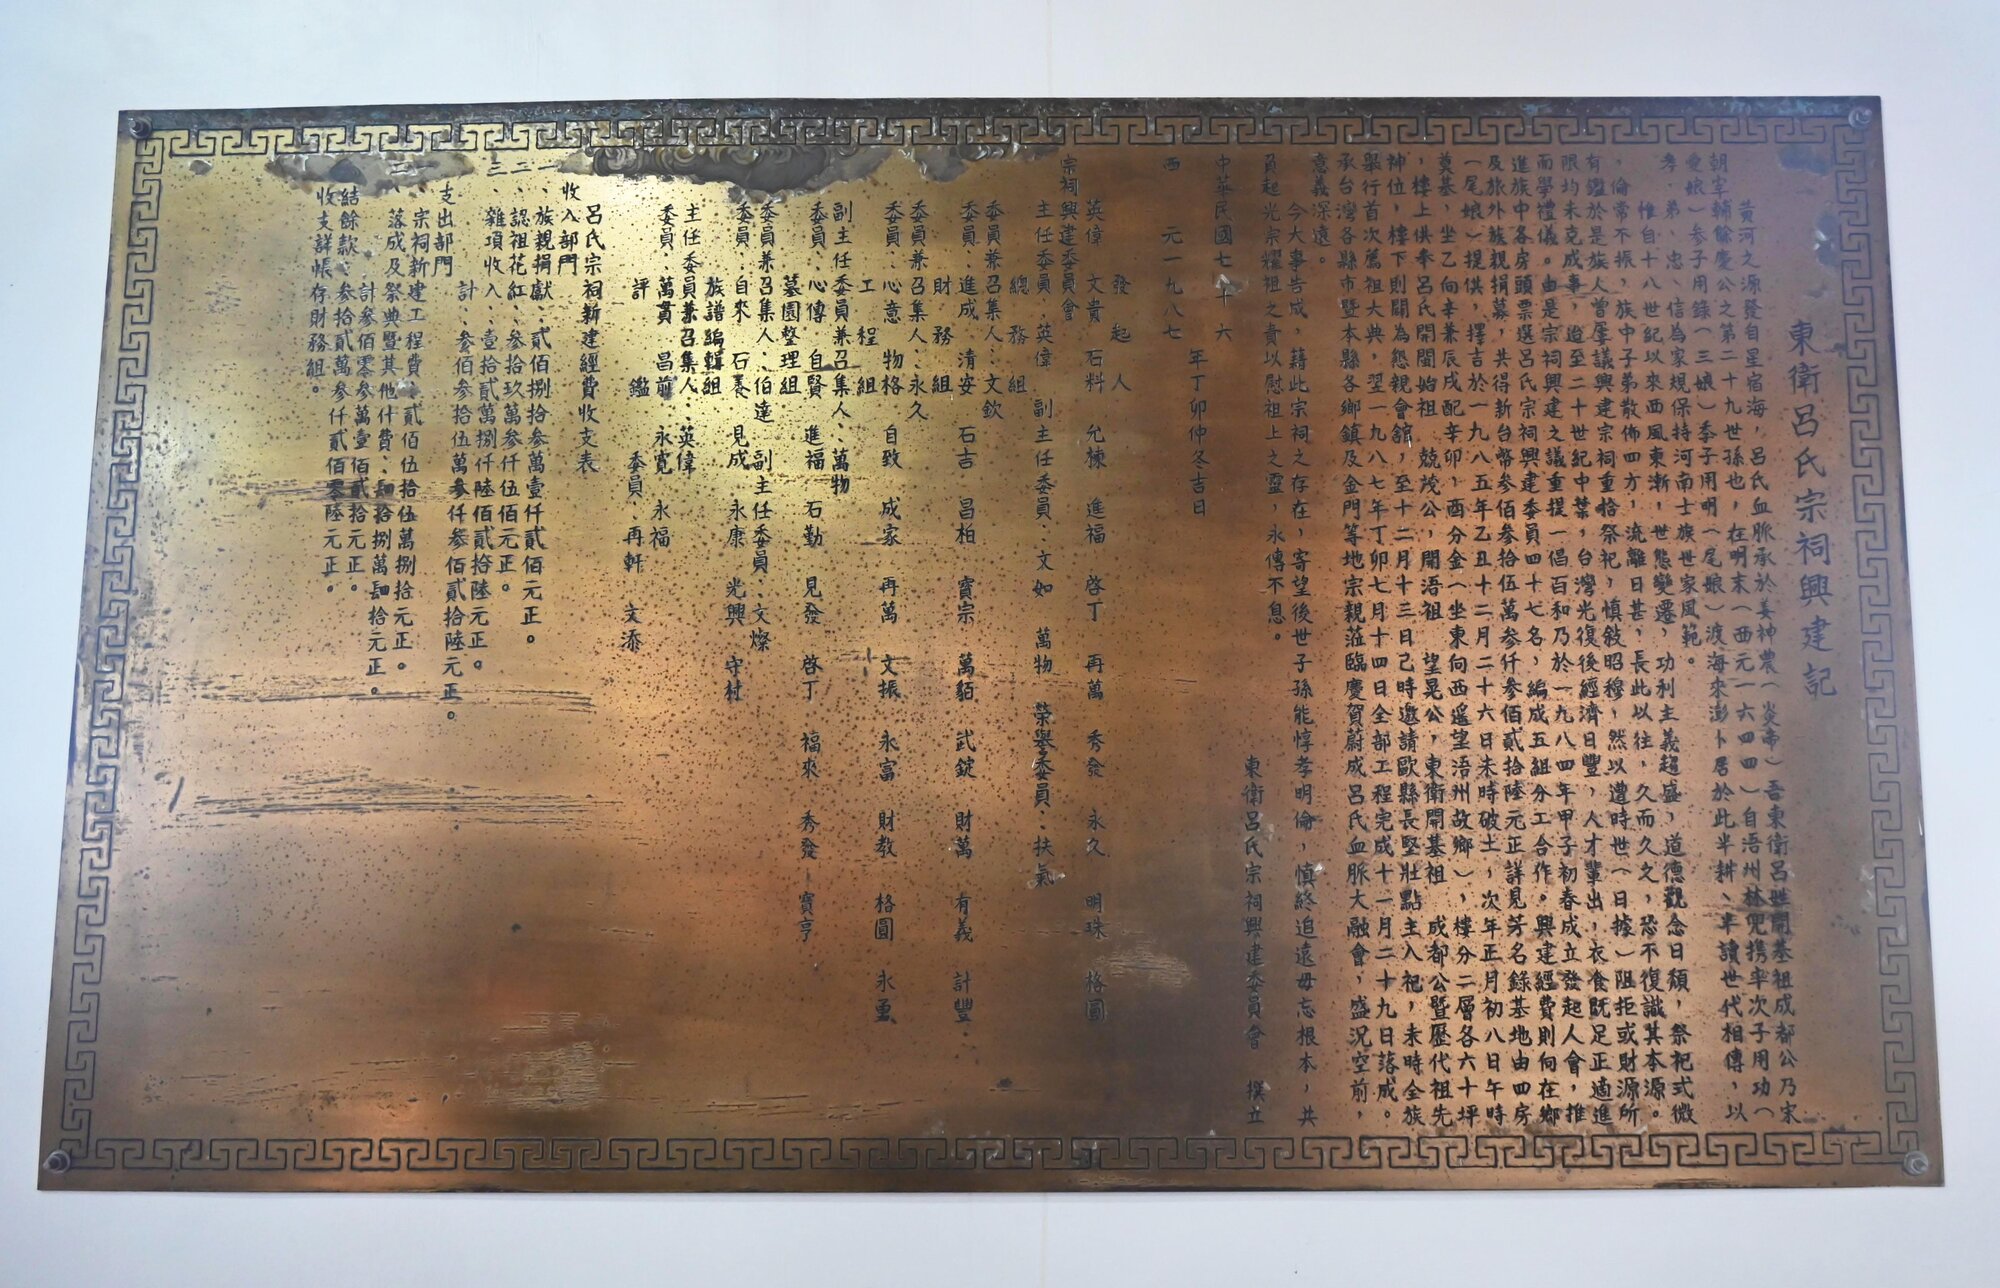 東衛呂氏宗祠興建記
黃河之源發自星宿海，呂氏血脈承於姜神農（炎帝）吾東衛呂姓開基祖成都公乃宋
朝宰輔餘慶公之第二十九世孫也，在明末（西元一六四四）自浯州林兜携率次子用功（
愛娘）參子用錄（三娘）季子用明（尾娘）渡海來澎卜居於此半耕、半讀世代相傳，以
孝．弟、忠、信為家規保持河南士族世家風範。
惟自十八世紀以來西風東漸，世態變遷，功利主義超盛，道德觀念日頹，祭祀式微
，倫常不振，族中子弟散佈四方，流離日甚，長此以往，久而久之，恐不復識其本源。
有鑑於是族人曾屢議興建宗祠重拾祭祀，慎敘昭穆，然以遭時世（日據）阻拒或財源所
限均未克成事，迨至二十世紀中葉，台灣光復後經濟日豐，人才輩出，衣食既足正適進
而學禮儀。由是宗祠興建之議重提一倡百和乃於一九八四年甲子初春成立發起人會，推
進族中各房頭票選呂氏宗祠興建委員四十七名，編成五組分工合作。興建經費則向在鄉
及旅外族親捐募，共得新台幣參佰參拾伍萬參仟參佰貳拾陸元正詳見芳名錄基地由四房
（尾娘）提供，擇吉於一九八五年乙丑十二月二十六日未時破土，次年正月初八日午時
奠基，坐乙向辛兼辰戌配辛卯，酉分金（坐東向西遙望浯州故鄉），樓分二層各六十坪
，樓上供奉呂氏開閩始祖　競茂公，開浯祖　望晃公，東衛開基祖　成都公暨歷代祖先
神位，樓下則闢為懇親會舘，至十二月十三日己時邀請歐縣長堅壯點主入祀，未時全族
舉行首次薦祖大典，翌一九八七年丁卯七月十四日全部工程完成十一月二十九日落成。
承台灣各縣市暨本縣各鄉鎮及金門等地宗親蒞臨慶賀蔚成呂氏血脈大融會，盛況空前，
意義深遠。
今大事告成，藉此宗祠之存在，寄望後世子孫能惇孝明倫，慎終追遠毋忘根本，共
員起光宗耀祖之責以慰祖上之靈，永傳不息。
東衛呂氏宗祠興建委員會　撰立
中華民國七十六年丁卯仲冬吉日
西元一九八七
發起人
英偉　文貴　石料　允棟　進福　啓丁　再萬　秀發　永久　明珠　格圓
宗祠興建委員會
主任委員：英偉　副主任委員：文如　萬物　榮舉委員：扶氣
總務組
委員兼召集人：文欽
委員：進成　清安　石吉　昌柏　寶宗　萬貊　武錠　財萬　有義　計豐．
財務組
委員兼召集人：永久
委員：心意　物格　自致　成家　再萬　文振　永富　財教　格圓　永重
工程組
副主任委員兼召集人：萬物
委員：心傳　自賢　進福　石勤　見發　啓丁　福來　秀發　寶亨
墓園整理組
委員兼召集人：伯達　副主任委員：文燦
委員：自來　石養　見成　永康　光興　守村
族譜編輯組
主任委員兼召集人：英偉
委員：萬賞　昌前　永寬　永福
評鑑　委員：再軒　文添
呂氏宗祠新建經費收支表
收入部門
一、族親捐獻：貳佰捌拾參萬壹仟貳佰元正。
二、認祖花紅：參拾玖萬參仟伍佰元正。
三、雜項收入：壹拾貳萬捌仟陸佰貳拾陸元正。
計：參佰參拾伍萬參仟參佰貳拾陸元正。
支出部門
宗祠新建工程費：貳佰伍拾伍萬捌拾元正。
二、落成及祭典暨其他什費：肆拾捌萬肆拾元正。
計參佰零參萬壹佰貳拾元正。
結餘款：參拾貳萬參仟貳佰零陸元正。
收支詳帳存財務組。